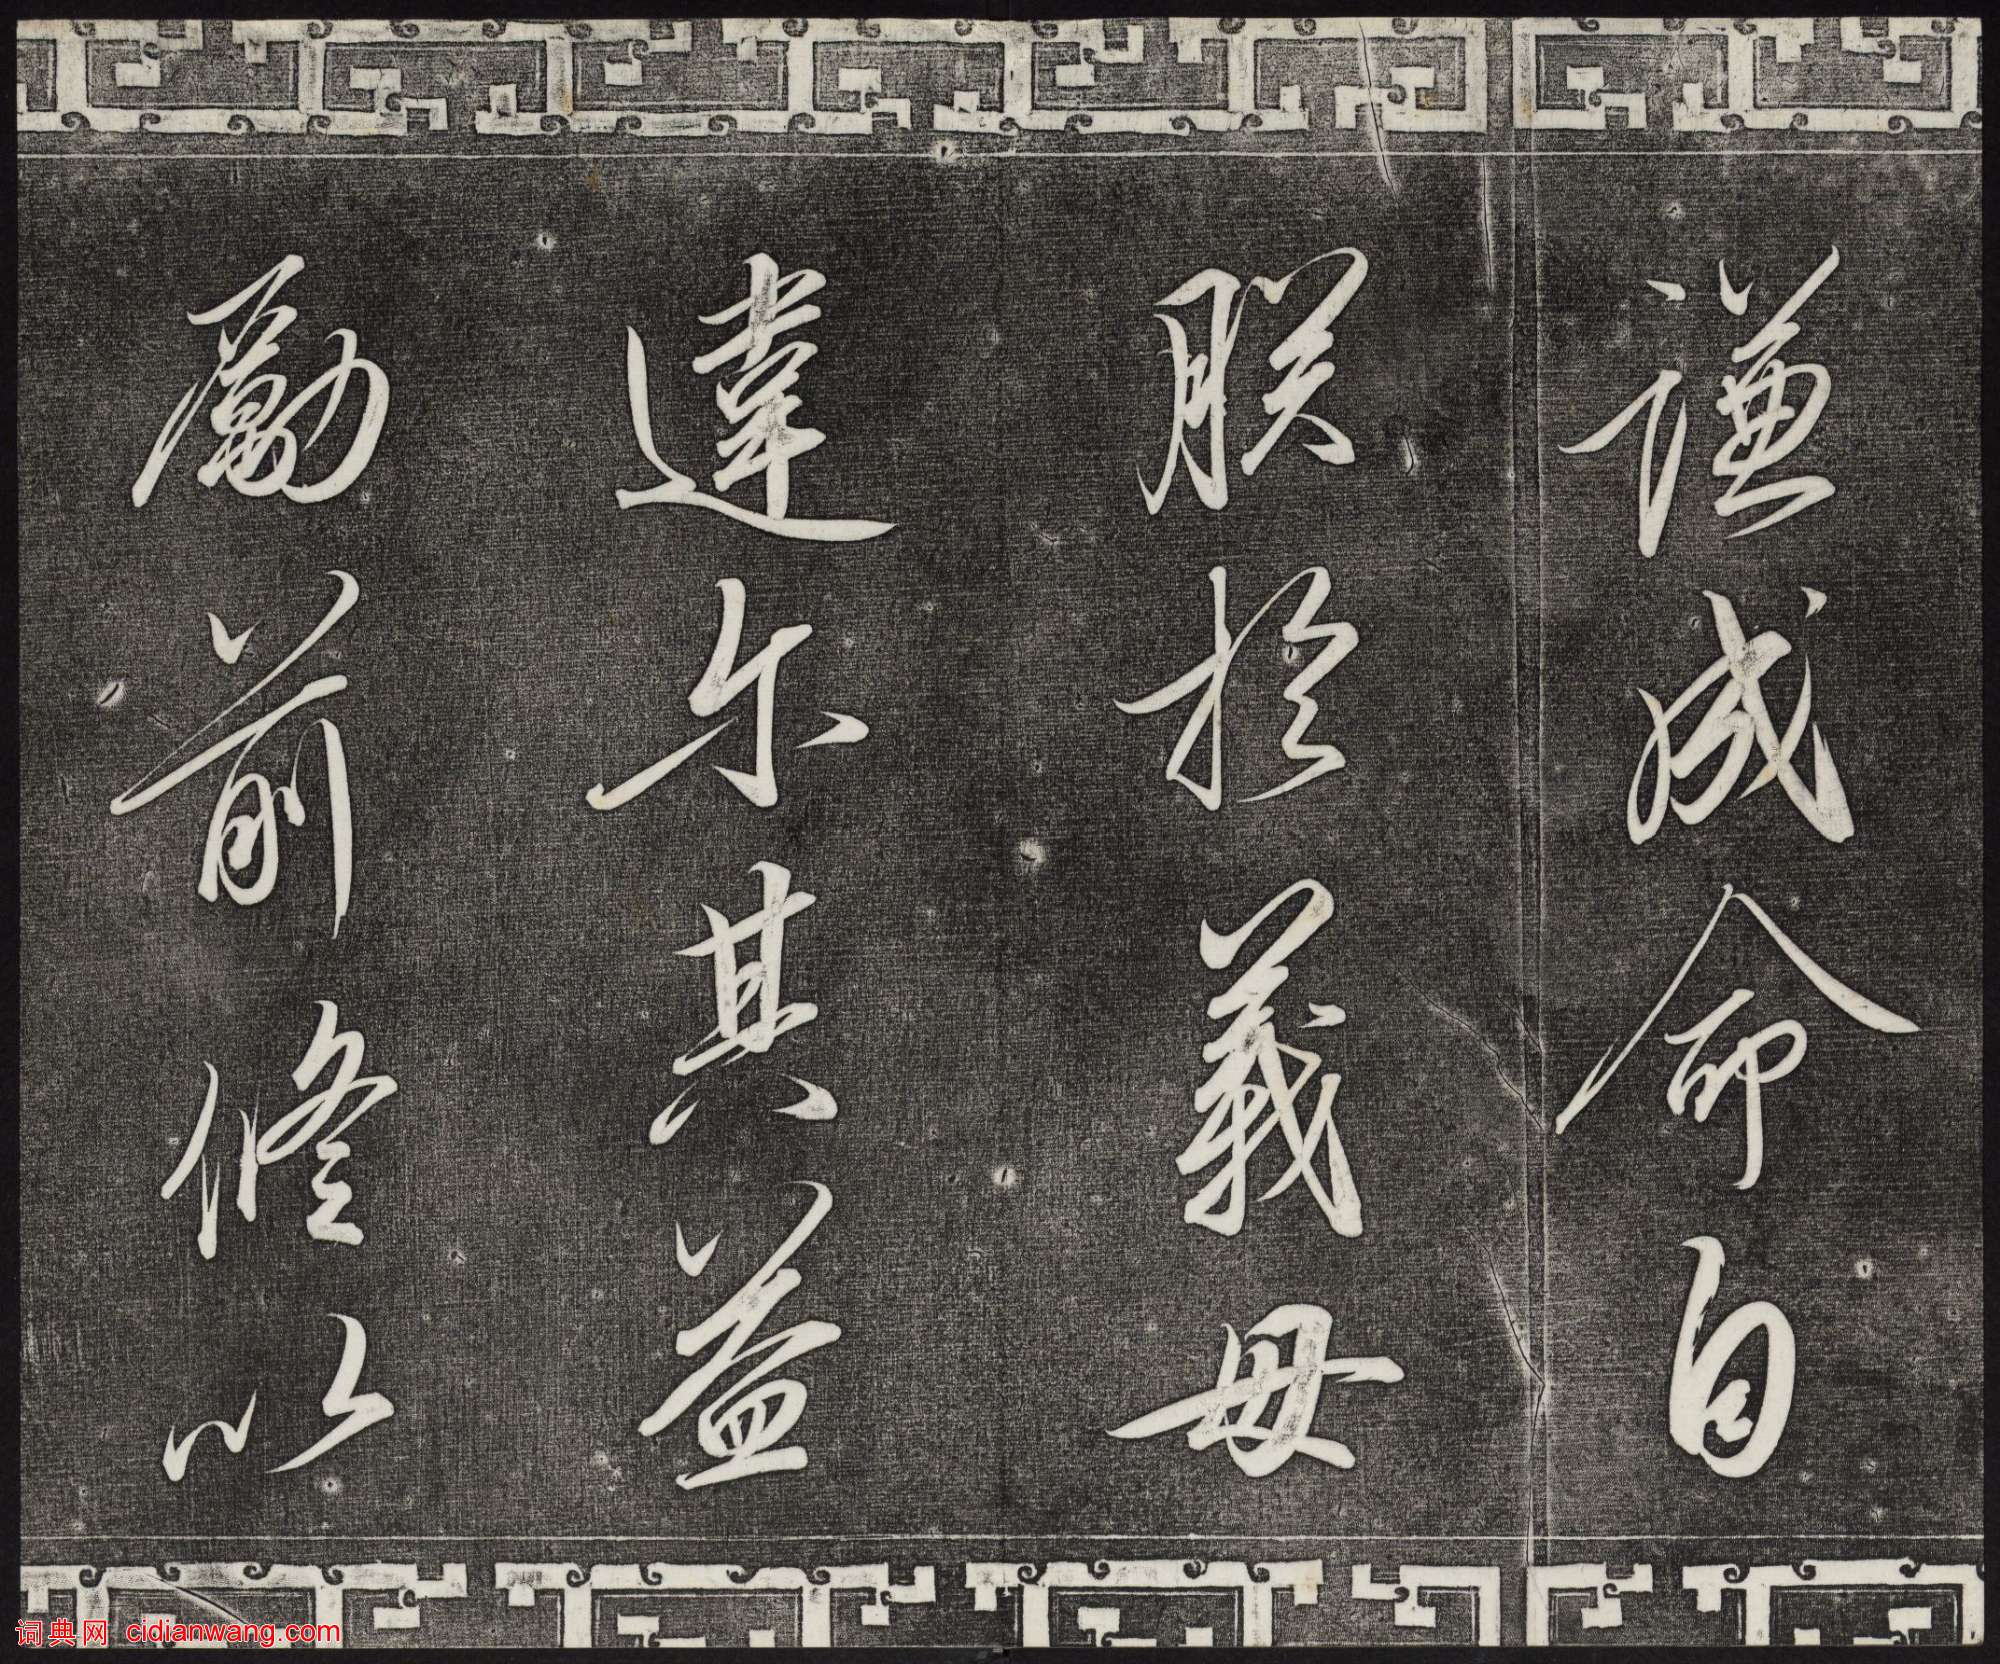 謙成命自
朕於義毋
違尔其益
勵前修以
词典网 cidianwang.com